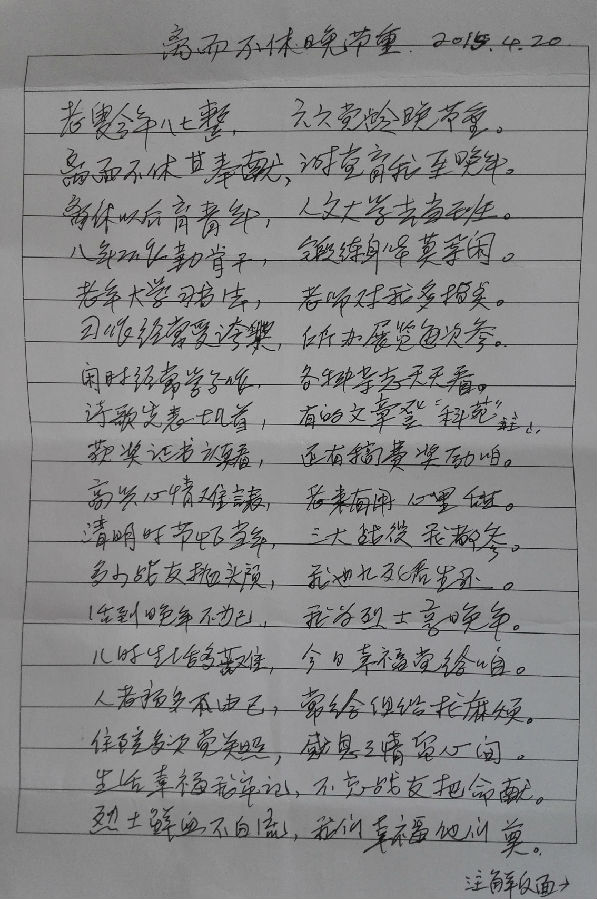 离而不休晚节重 2015.4.20.
老叟今年八七整， 六六党龄晚节重。
离而不休其奉献， 谢党育我至晚年。
离休以后育青年， 人文大学去当主任。
八年 勤肯干， 锻练身体莫等闲。
老年大学习书法， 老师对我多指点。
习作经常受夸奖， 所办展览每次参。
闲时经常学写作， 各种杂志天天看。
诗歌发表七八首， 有的文章登“科苑”注1。
获奖证书认真看， 还有稿费奖励咱。
高兴心情难言表， 老来有用心里甜。
清明时节怀当年， 三大战役我都参。
多少战友抛头颅， 我也九死后生还。
活到晚年不为己， 我为烈士度晚年。
儿时生活多艰难， 今日幸福党给咱。
人老病多不由己， 常给组织找麻烦。
住院多次党关照， 感恩之情留心间。
生活幸福我牢记， 不忘战友把命献。
烈士鲜血不白流， 我们幸福他们奠。
注解反面→